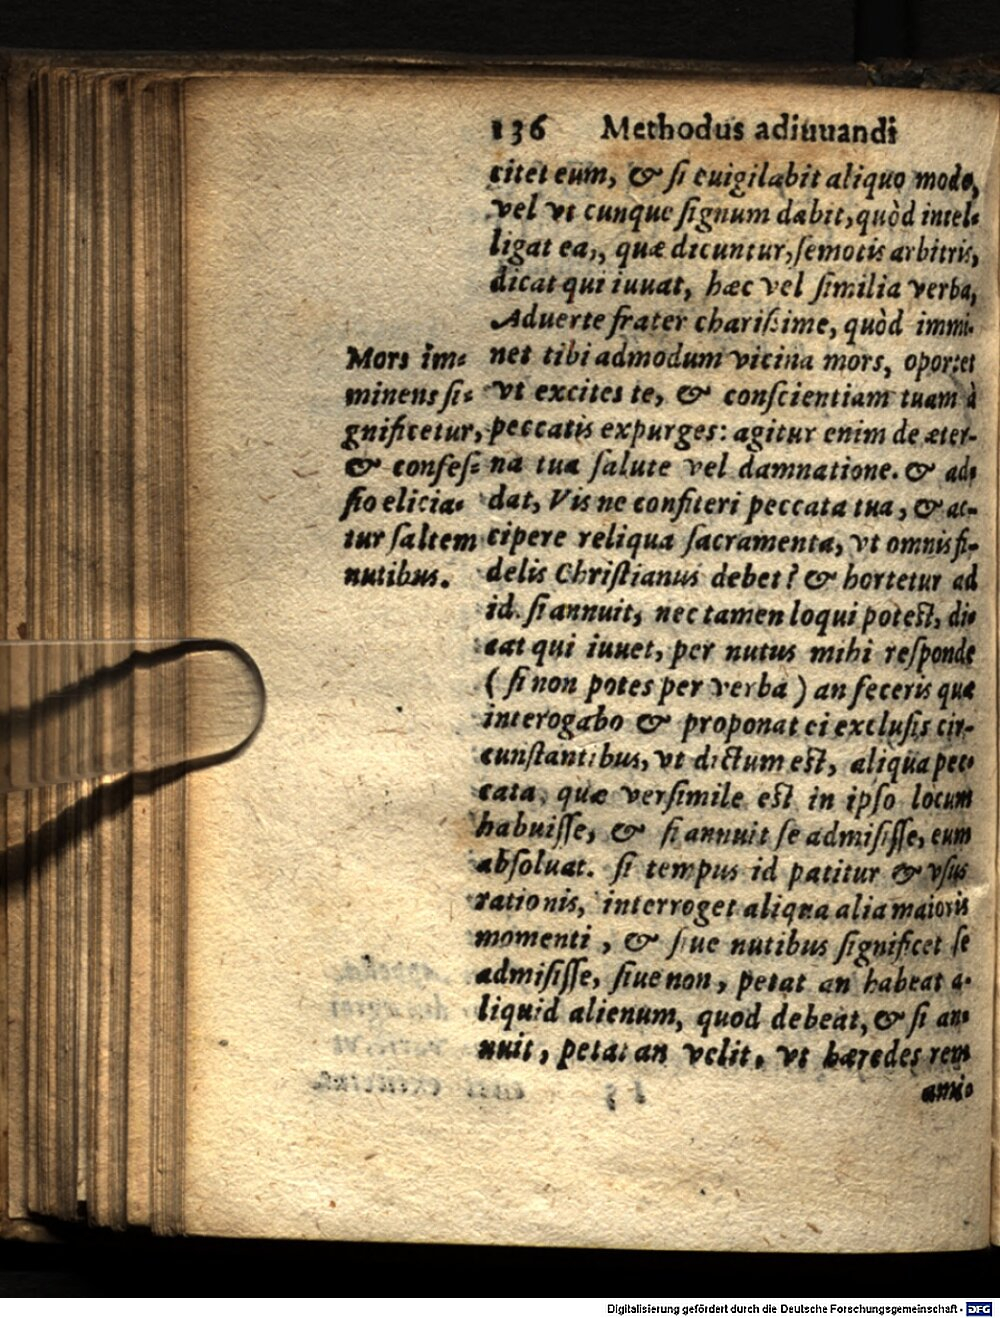 136 Methodus adiuuandi
citet eum, & ſi euigilabit aliquo modo,
vel vt cunque ſignum dabit, quòd intel-
ligat ea,, quæ dicuntur, ſemotis arbitris,
dicat qui iuuat, hæc vel ſimilia verba,
Aduerte frater chariſsime, quòd immi-
net tibi admodum vicina mors, oportet
vt excites te, & conſcientiam tuam à
peccatis expurges: agitur enim de æter-
na tua ſalute vel damnatione. & ad-
dat, Vis ne confiteri peccata tua, & ac-
cipere reliqua ſacramenta, vt omnis fi-
delis Chriſtianus debet? & hortetur ad
id. ſi annuit, nec tamen loqui poteſt, di-
cat qui iuuet, per nutus mihi reſponde
( ſi non potes per verba ) an feceris quæ
interogabo & proponat ei excluſis cir-
cunſtantibus, vt dictum eſt, aliqua pec-
cata, quæ verſimile eſt in ipſo locum
habuiſſe, & ſi annuit ſe admiſiſſe, eum
abſoluat. ſi tempus id patitur & vſus
rationis, interroget aliqua alia maioris
momenti, & ſiue nutibus ſignificet ſe
admiſiſſe, ſiue non, petat an habeat a-
liquid alienum, quod debeat, & ſi an-
nuit, petat an velit, vt hæredes rem
Mors im-
minens ſi-
gnificetur,
& confeſ-
ſio elicia-
tur ſaltem
nutibus.